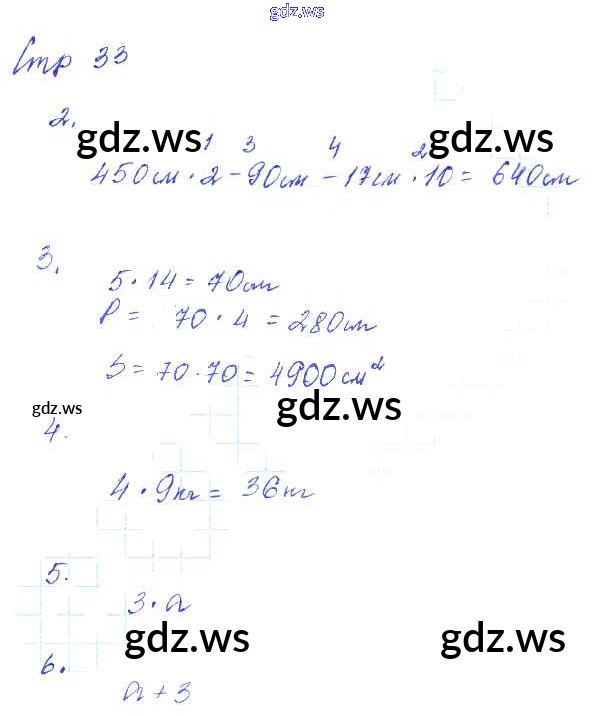 gdz.ws
Стр 33
2.
gdz.ws
1 3 4 2 gdz.ws
450см · 2 - 90см - 17см · 10 = 640см
3.
5 · 14 = 70см
P = 70 · 4 = 280см
S = 70 · 70 = 4900см²
gdz.ws gdz.ws
4.
4 · 9кг = 36кг
5.
3 · a
gdz.ws gdz.ws
6.
a + 3